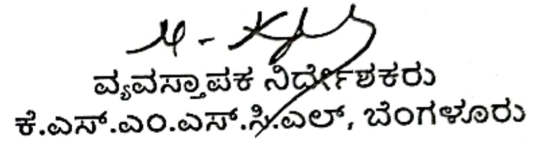 ವ್ಯವಸ್ಥಾಪಕ ನಿರ್ದೇಶಕರು
ಕೆ.ಎಸ್.ಎಂ.ಎಸ್.ಸಿ.ಎಲ್, ಬೆಂಗಳೂರು